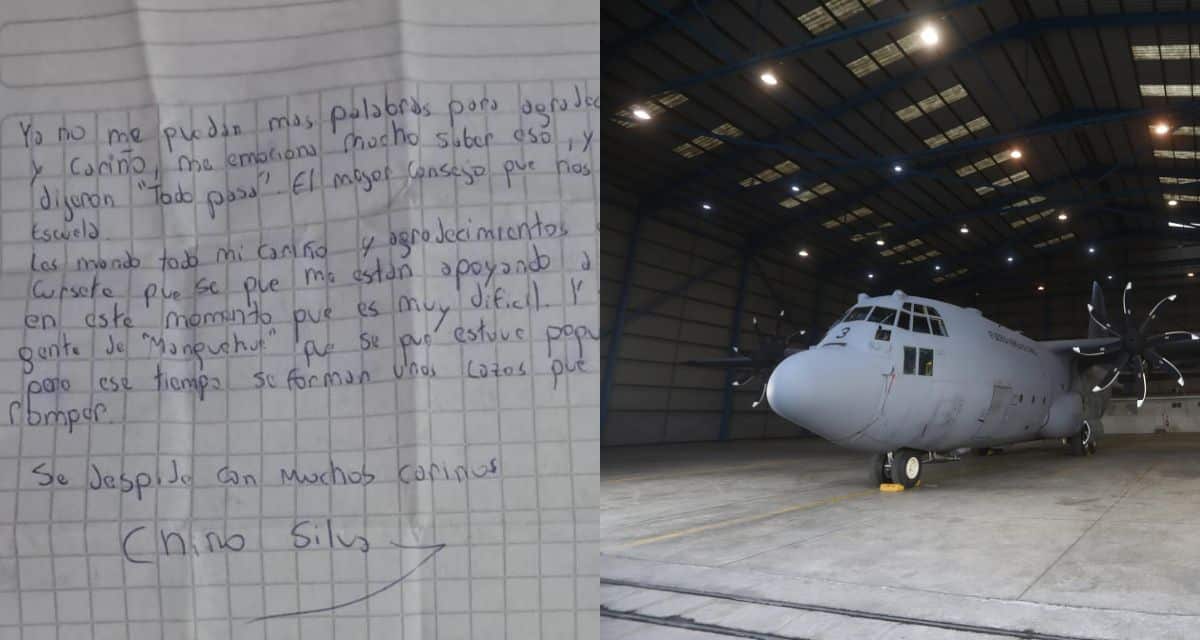 Ya no me quedan mas palabras para agradec
y cariño, me emociona mucho saber eso, y
dijeron "Todo pasa". El mayor consejo que nos
Escuela.
Les mando todo mi cariño y agradecimientos
Cursete que se que me estan apoyando
en este momento que es muy dificil. Y
gente de "Manquehue" que se que estuve poqu
pero ese tiempo se forman unos lazos que
romper.
Se despide con muchos cariños
Chino Silva
3